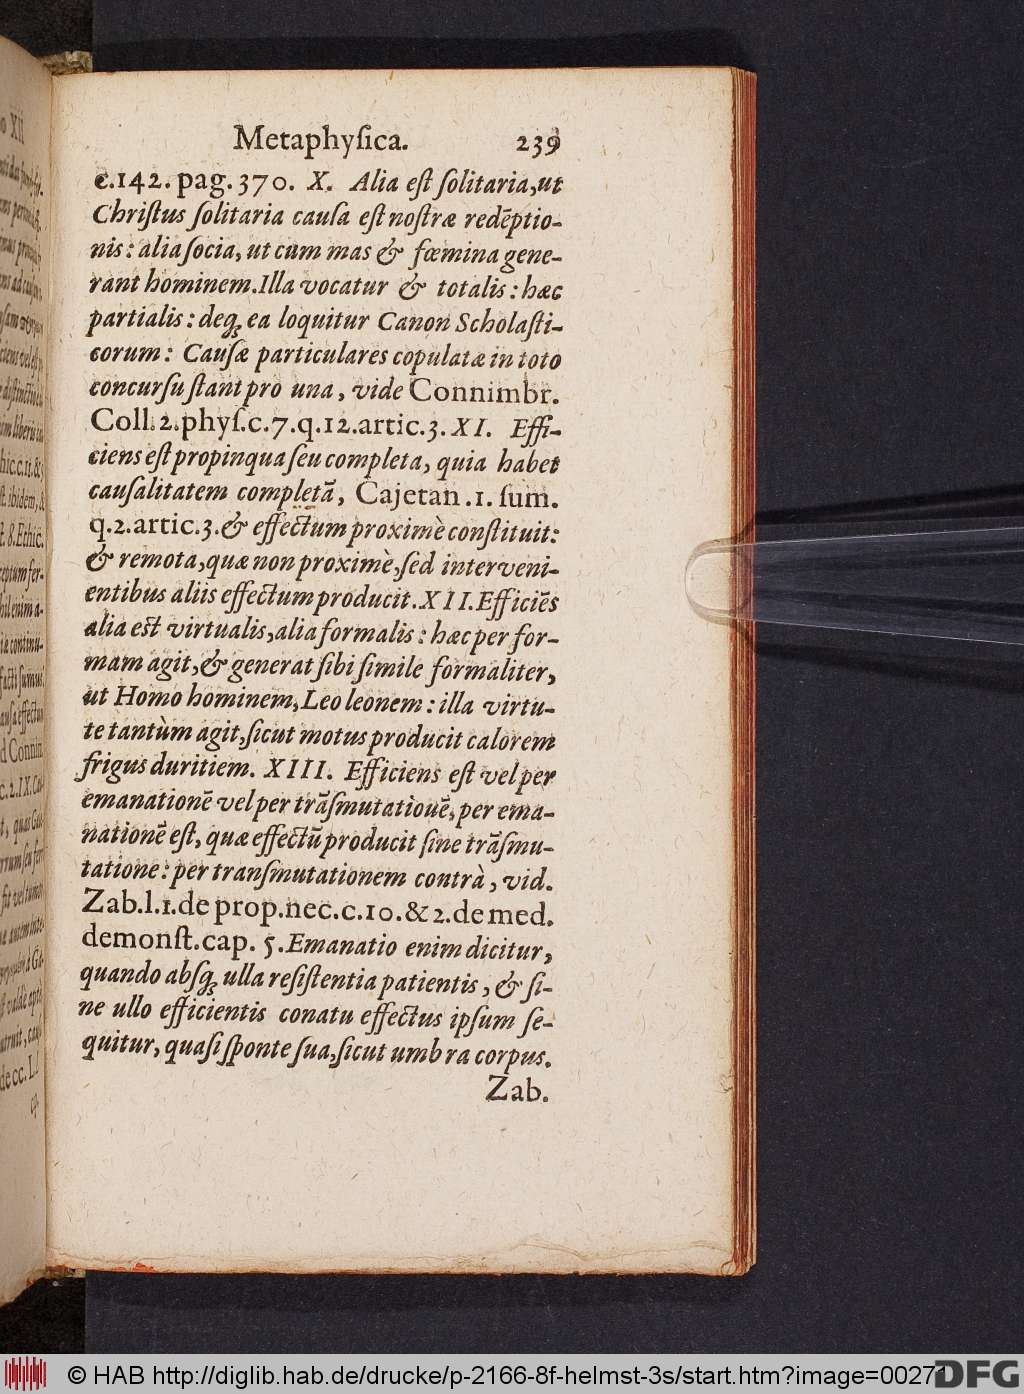 Metaphyſica. 239
c.142. pag. 370. X. Alia eſt ſolitaria, ut
Chriſtus ſolitaria cauſa eſt noſtræ redēptio-
nis: alia ſocia, ut cum mas & fœmina gene-
rant hominem. Illa vocatur & totalis: hæc
partialis: deq́ ea loquitur Canon Scholaſti-
corum: Cauſæ particulares copulatæ in toto
concurſu ſtant pro una, vide Connimbr.
Coll. 2. phyſ. c. 7. q. 12. artic. 3. XI. Effi-
ciens eſt propinqua ſeu completa, quia habet
cauſalitatem completā, Cajetan. 1. ſum.
q. 2. artic. 3. & effectum proximè conſtituit:
& remota, quæ non proximè, ſed interveni-
entibus aliis effectum producit. XII. Efficiēs
alia est virtualis, alia formalis: hæc per for-
mam agit, & generat ſibi ſimile formaliter,
ut Homo hominem, Leo leonem: illa virtu-
te tantùm agit, ſicut motus producit calorem
frigus duritiem. XIII. Efficiens eſt vel per
emanationē vel per trāſmutatiouē, per ema-
nationē eſt, quæ effectū producit ſine trāſmu-
tatione: per tranſmutationem contrà, vid.
Zab. l. 1. de prop. nec. c. 10. & 2. de med.
demonſt. cap. 5. Emanatio enim dicitur,
quando abſq́ ulla reſiſtentia patientis, & ſi-
ne ullo efficientis conatu effectus ipſum ſe-
quitur, quaſi ſponte ſua, ſicut umbra corpus.
Zab.
© HAB http://diglib.hab.de/drucke/p-2166-8f-helmst-3s/start.htm?image=00271
DFG